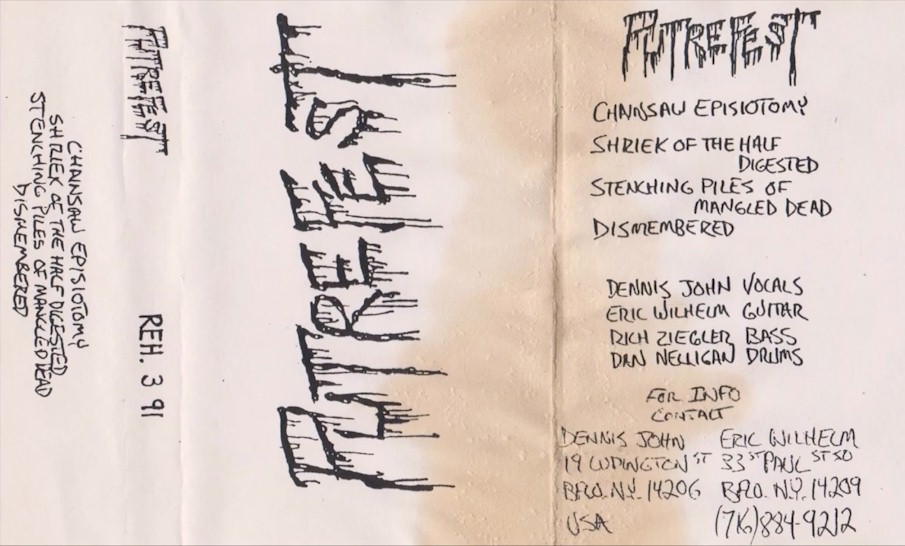 CHAINSAW EPISIOTOMY
SHRIEK OF THE HALF DIGESTED
STENCHING PILES OF MANGLED DEAD
DISMEMBERED
PUTREFEST
REH. 3 91
PUTREFEST
PUTREFEST
CHAINSAW EPISIOTOMY
SHRIEK OF THE HALF
DIGESTED
STENCHING PILES OF
MANGLED DEAD
DISMEMBERED
DENNIS JOHN VOCALS
ERIC WILHELM GUITAR
RICH ZIEGLER BASS
DAN NELLIGAN DRUMS
FOR INFO
CONTACT
DENNIS JOHN
19 LUDINGTON ST
BFLO. N.Y. 14206
USA
ERIC WILHELM
33 ST PAUL ST SO
BFLO. N.Y. 14209
(716)884-9212